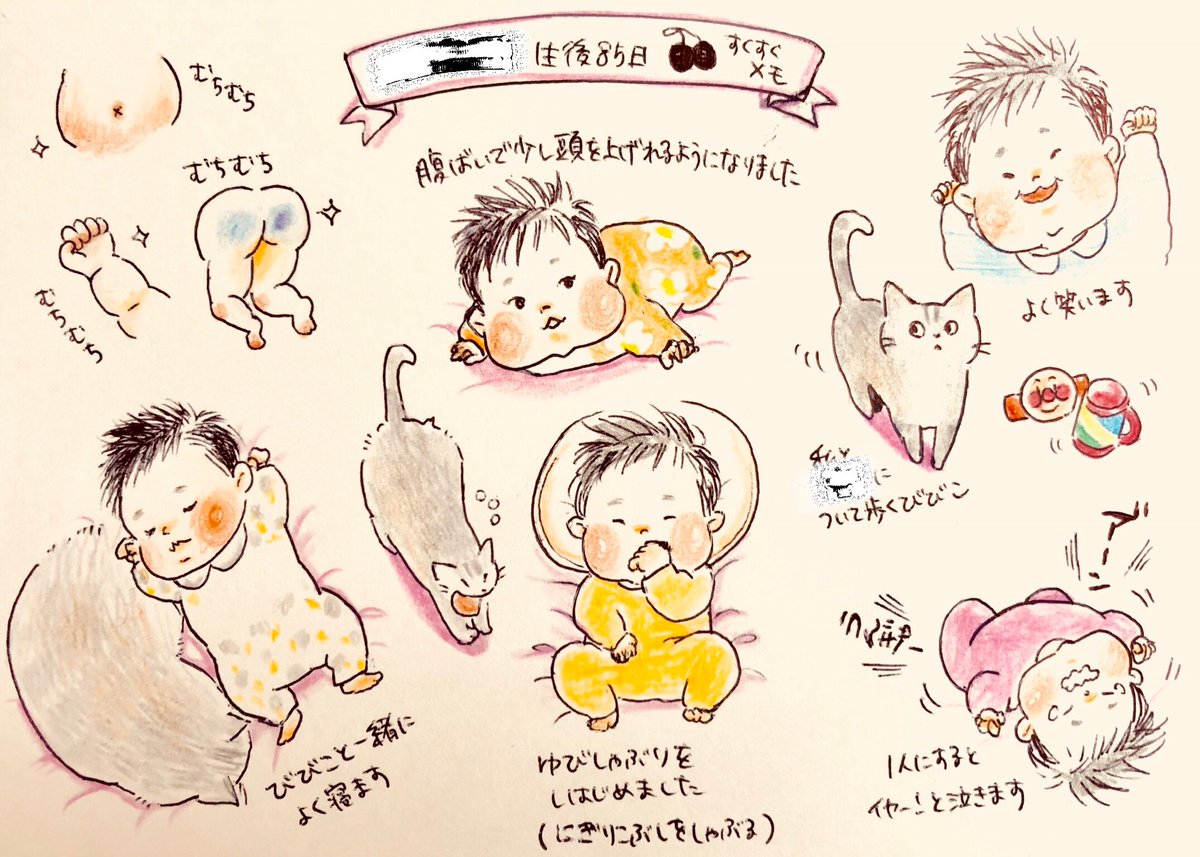 生後85日
すくすく
メモ
むちむち
むちむち
むちむち
腹ばいで少し頭を上げれるようになりました
よく笑います
に
ついて歩くびびこ
びびこと一緒に
よく寝ます
ゆびしゃぶりを
しはじめました
(にぎりこぶしをしゃぶる)
1人にすると
イヤー!と泣きます